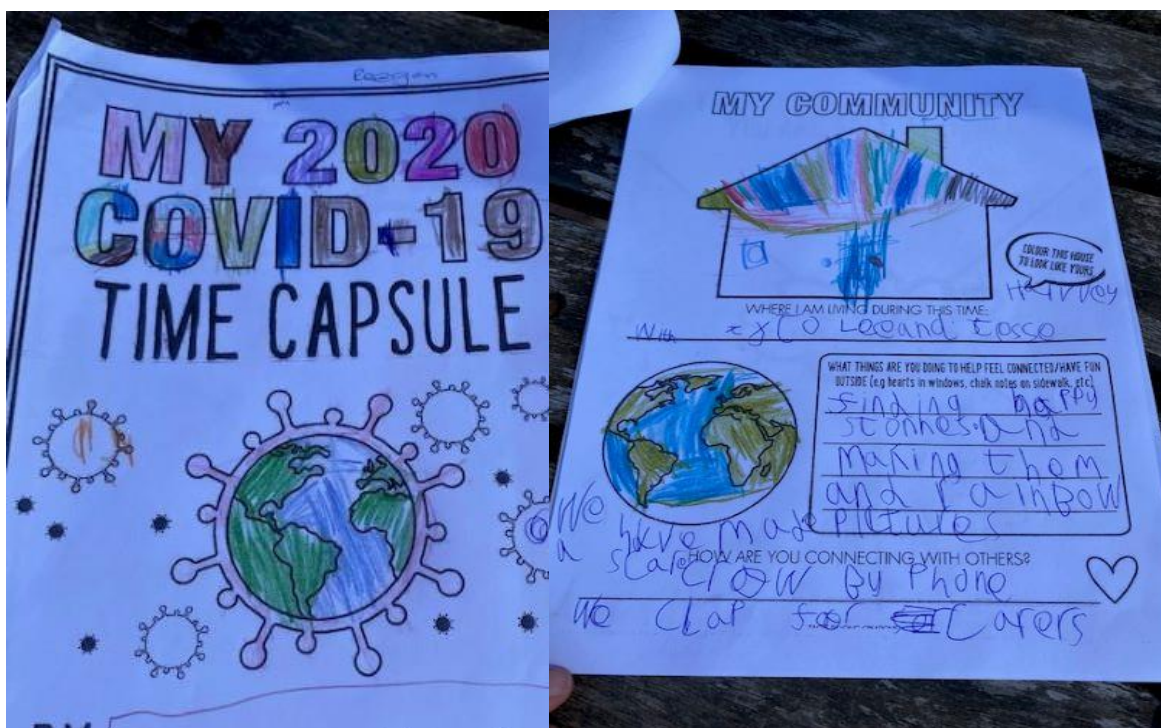 MY 2020
COVID-19
TIME CAPSULE
BY
MY COMMUNITY
COLOUR THIS HOUSE
TO LOOK LIKE YOURS
Harvey
WHERE I AM LIVING DURING THIS TIME:
With and
WHAT THINGS ARE YOU DOING TO HELP FEEL CONNECTED/HAVE FUN
OUTSIDE (e.g hearts in windows, chalk notes on sidewalk, etc)
finding happy
stonnes. and
making them
and rainBow
Pictures
We have made
a scarecrow
HOW ARE YOU CONNECTING WITH OTHERS?
By Phone
We clap for Carers